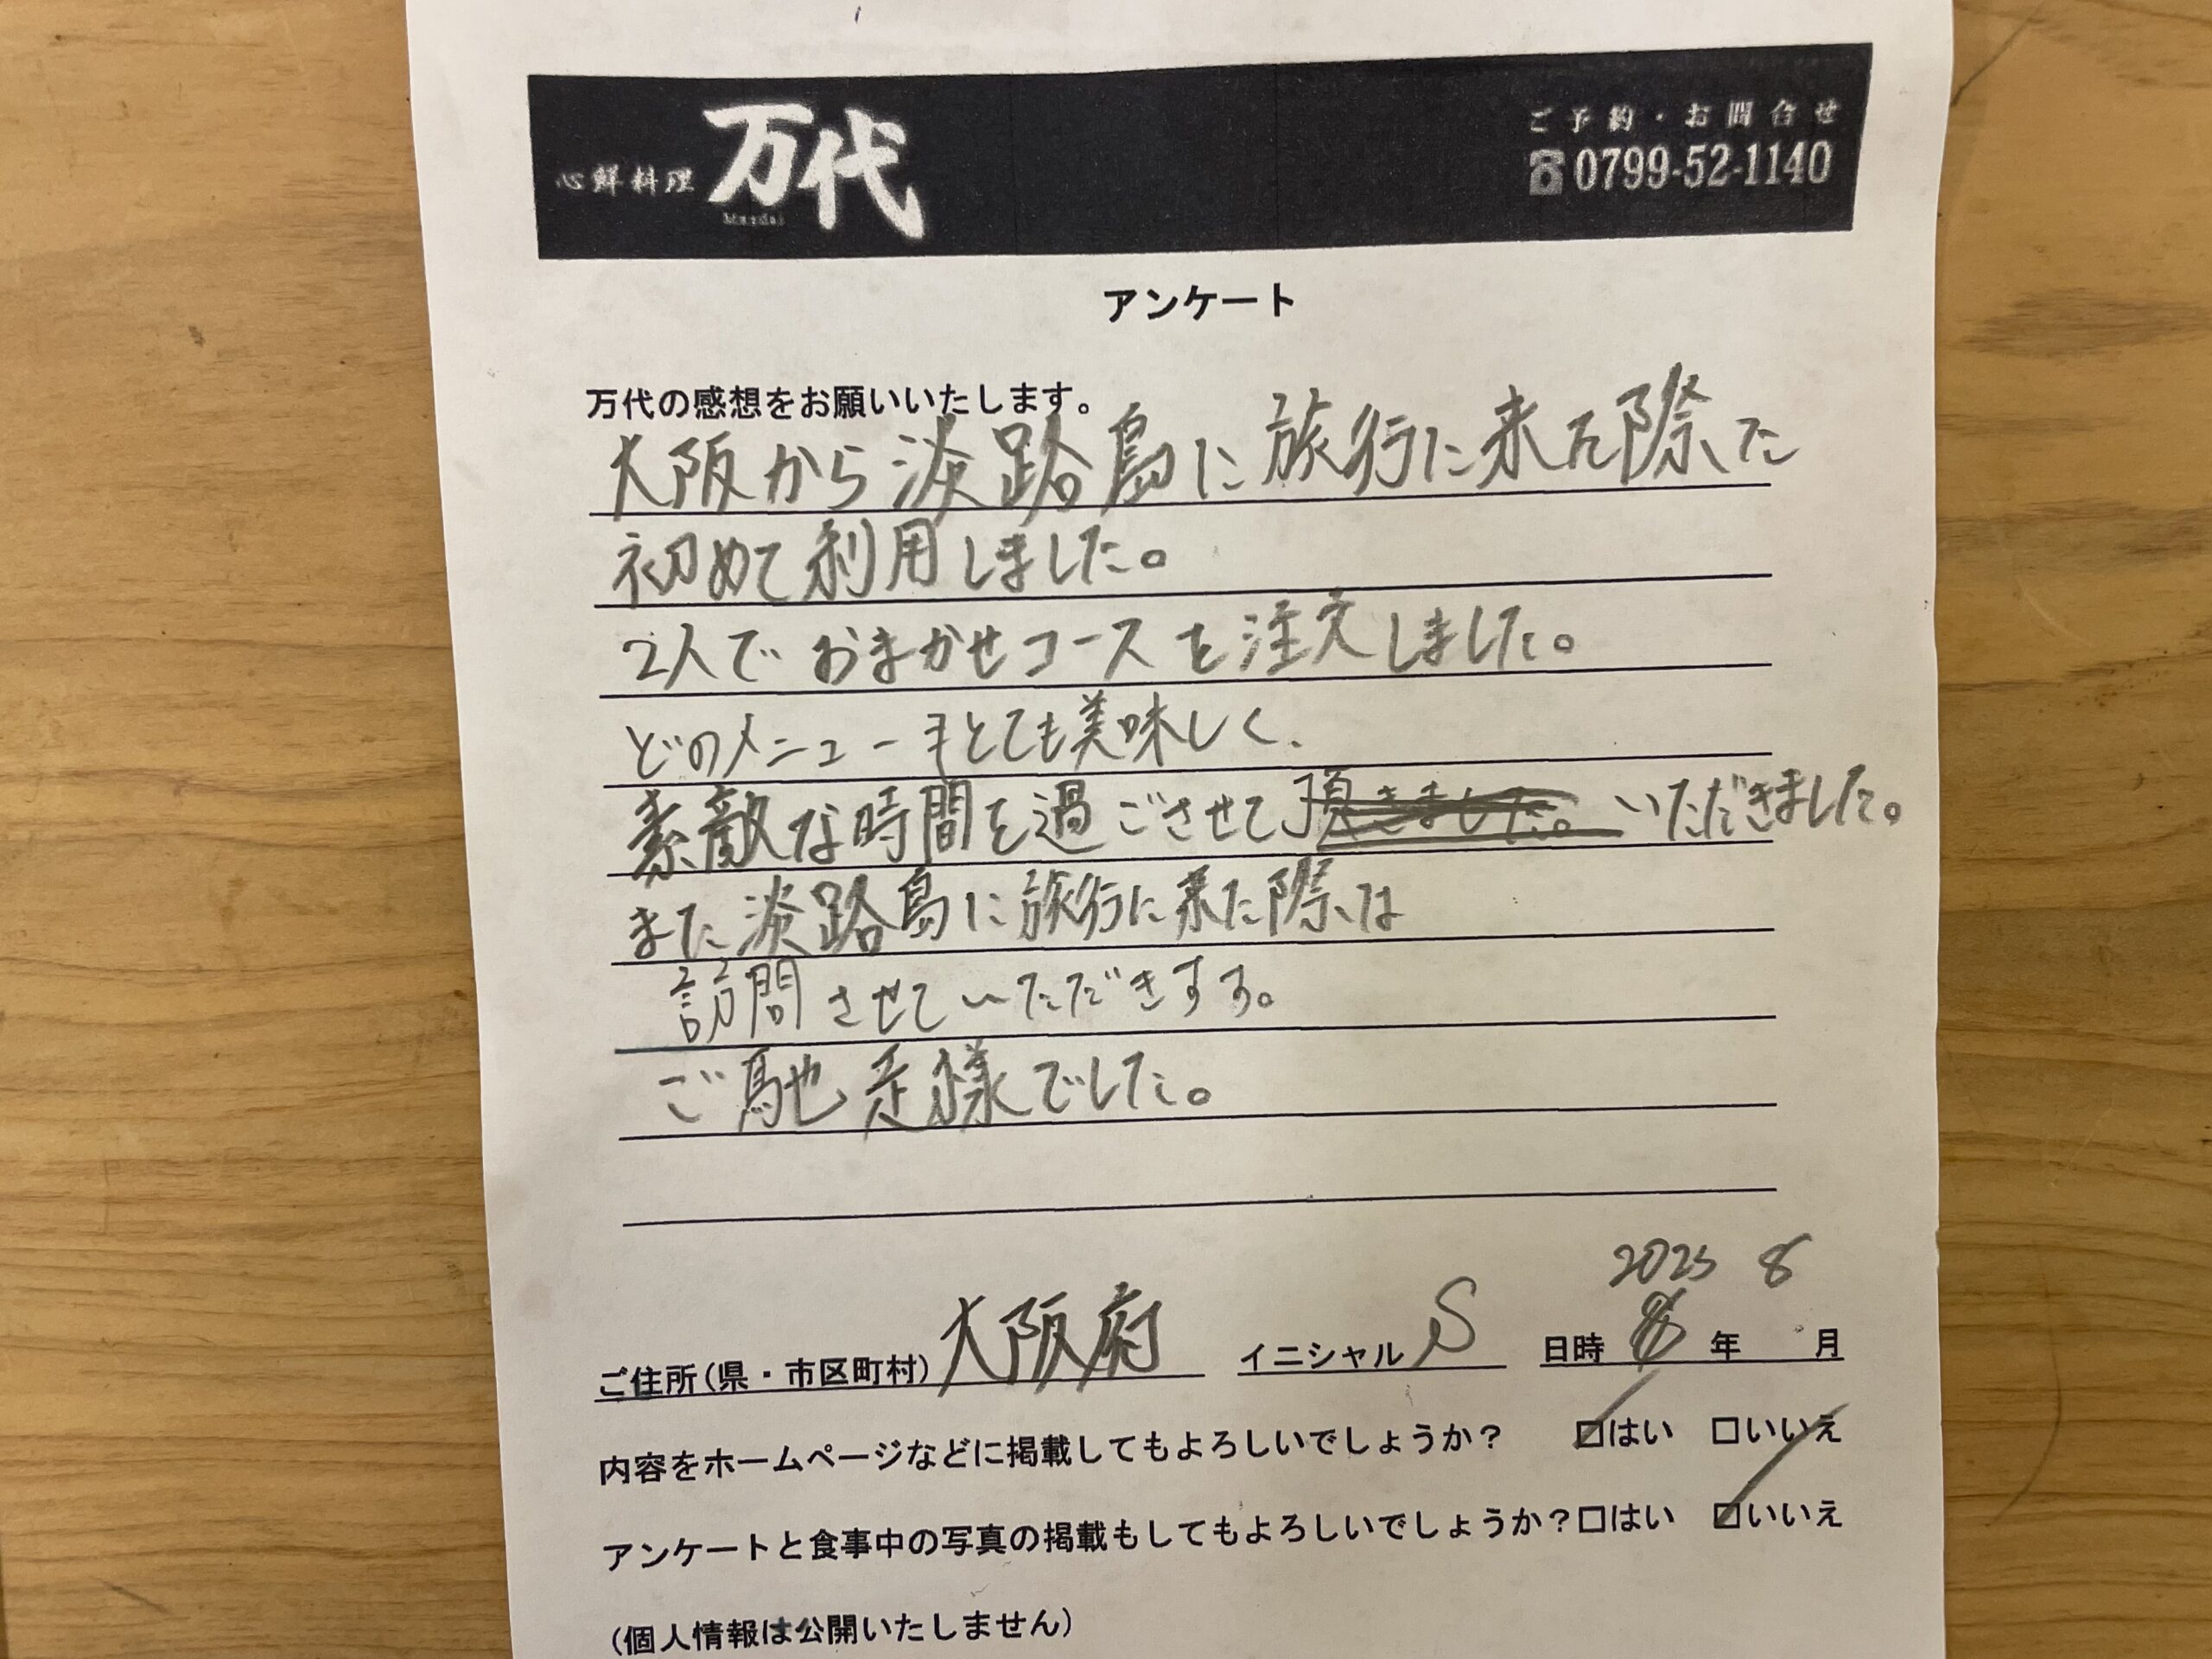 心鮮料理 万代
Mandai
ご予約・お問合せ
☎0799-52-1140
アンケート
万代の感想をお願いいたします。
大阪から淡路島に旅行に来た際に
初めて利用しました。
2人でおまかせコースを注文しました。
どのメニューもとても美味しく、
素敵な時間を過ごさせて頂きました。いただきました。
また淡路島に旅行に来た際は
訪問させていただきます。
ご馳走様でした。
2025 8
ご住所(県・市区町村) 大阪府 イニシャル S 日時 8 年 月
内容をホームページなどに掲載してもよろしいでしょうか? ☑はい □いいえ
アンケートと食事中の写真の掲載もしてもよろしいでしょうか?□はい ☑いいえ
(個人情報は公開いたしません)